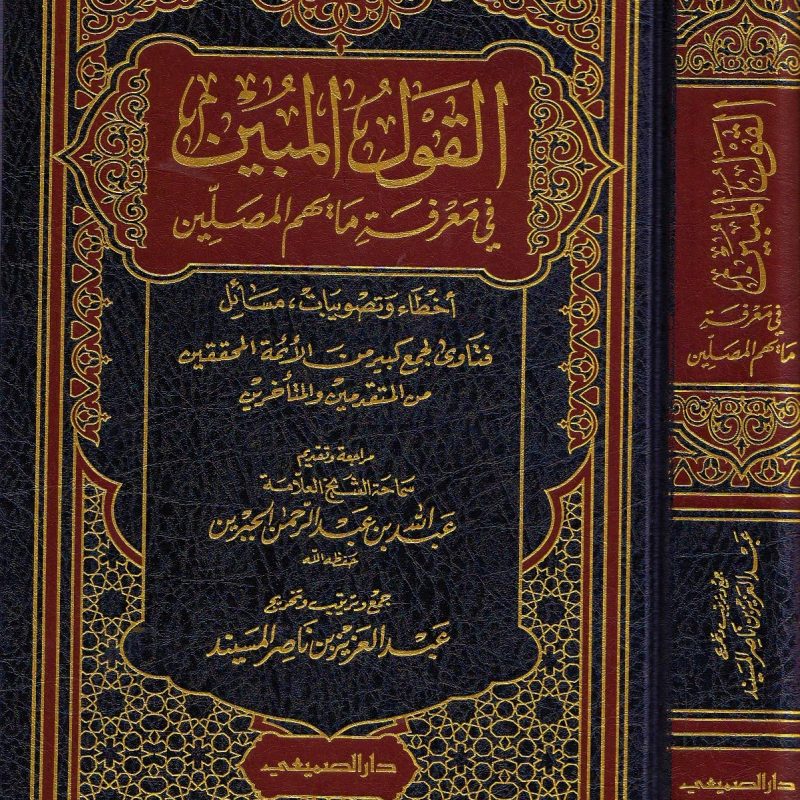 القَوْلُ المُبِين
في مَعْرفَةِ مَا يهم المصَلِّين
أخطاء وتصويبات، مسَائِل
فتاوى لجمع كبير من الأئمة المحققين
من المتقدمين والمتأخرين
مراجعة وتقديم
سماحة الشيخ العلامة
عبد الله بن عبد الرحمن الجبرين
حفظه الله
جمع وترتيب وتخريج
عبد العزيز بن ناصر المسيند
دار الصميعي
القَوْلُ المُبِين
في مَعْرفَةِ
مَا يهم المصَلِّين
جمع وترتيب وتخريج
عبد العزيز بن ناصر المسيند
دار الصميعي